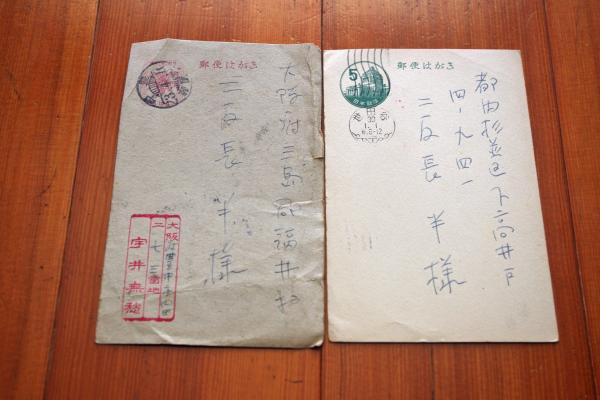 郵便はがき
大阪府三島郡福井村
二反長 半様
大阪
二七三番地
宇井無愁
郵便はがき
5
都内杉並区下高井戸
四、九四一
二反長 半様